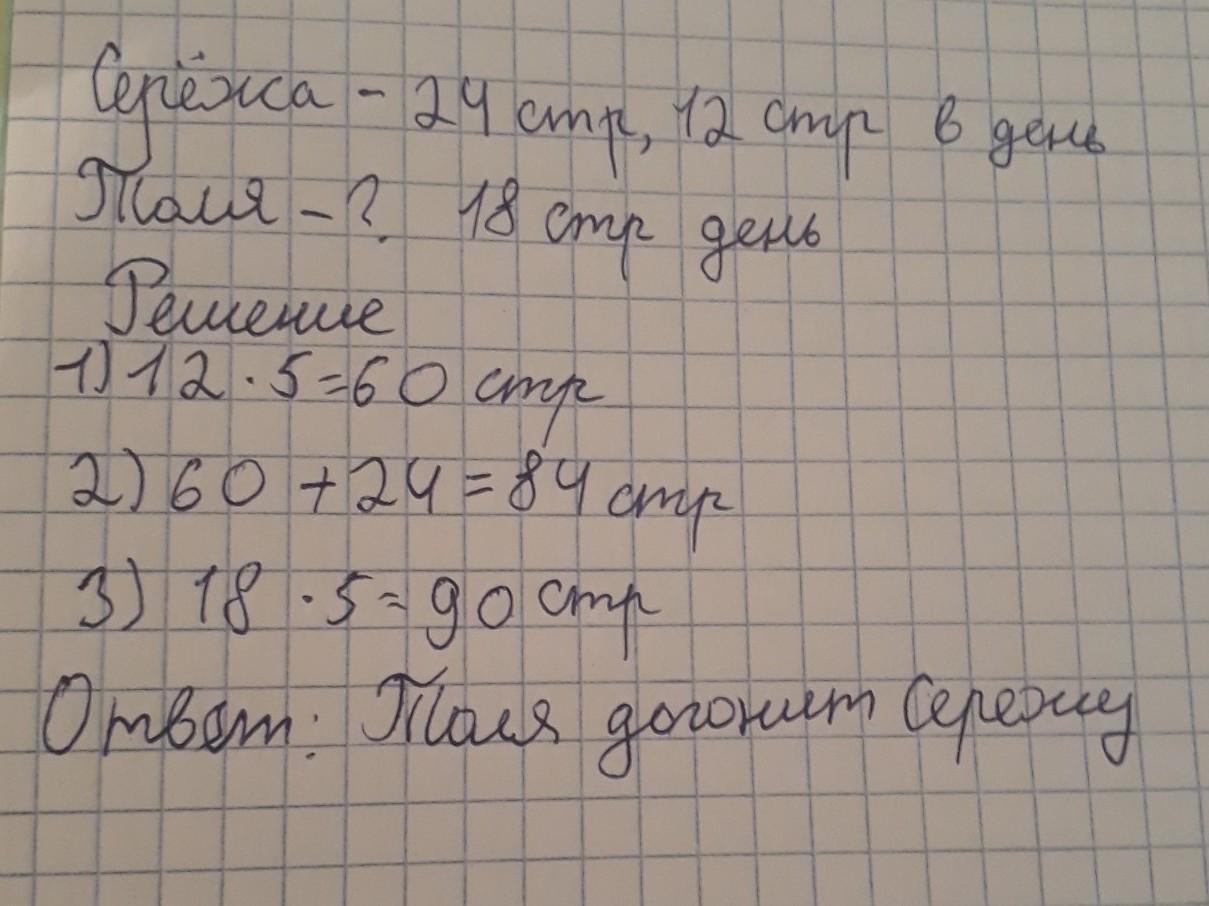 Серёжа - 24 стр, 12 стр в день
Толя - ? 18 стр день
Решение
1) 12 · 5 = 60 стр
2) 60 + 24 = 84 стр
3) 18 · 5 = 90 стр
Ответ: Толя догонит Сережу